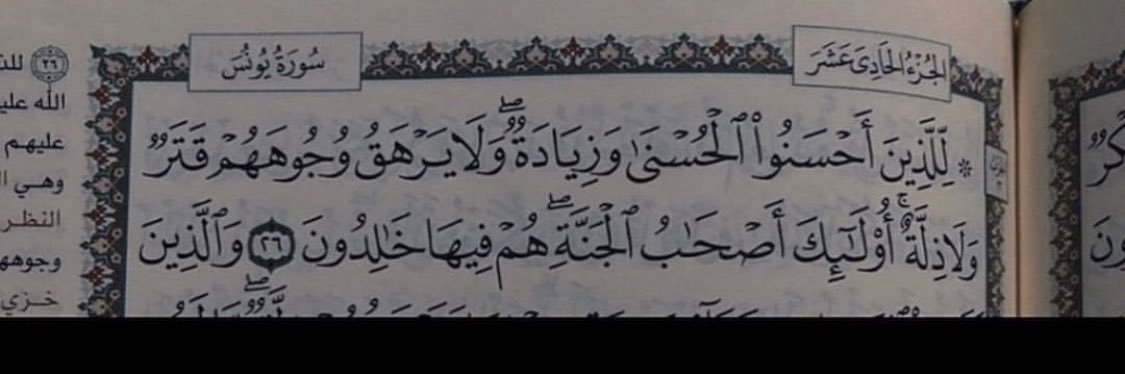 الجُزْءُ الحَادِيَ عَشَرَ
سُورَةُ يُونُسَ
۞ لِّلَّذِينَ أَحۡسَنُواْ ٱلۡحُسۡنَىٰ وَزِيَادَةٞۖ وَلَا يَرۡهَقُ وُجُوهَهُمۡ قَتَرٞ
وَلَا ذِلَّةٌۚ أُوْلَـٰٓئِكَ أَصۡحَٰبُ ٱلۡجَنَّةِۖ هُمۡ فِيهَا خَٰلِدُونَ ٢٦ وَٱلَّذِينَ
٢٦
الله
عليهم
وهي
النظر
خزي